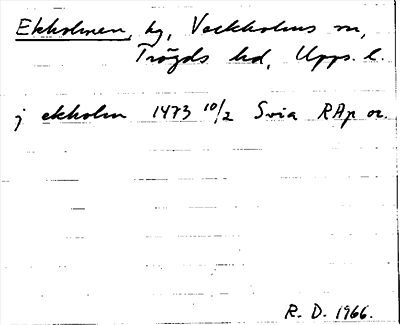 Ekholmen, hg, Veckholms sn,
Trögds hd, Upps. l.
j ekholm 1473 10/2 Svia RAp or.
R. D. 1966.